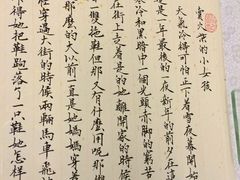 賣火柴的小女孩
天氣冷得可怕正下着雪夜幕開始
這是一年最後的一夜新年的前夕在這
寒冷和黑暗中一個光頭赤脚的窮苦
在街上走着是的她離開家的時候
一雙拖鞋但那又有什麼用呢那
那麼的大以前一直是她媽媽穿
在穿過大街的時候兩輛馬車飛
得她把鞋跑落了一只鞋她怎樣